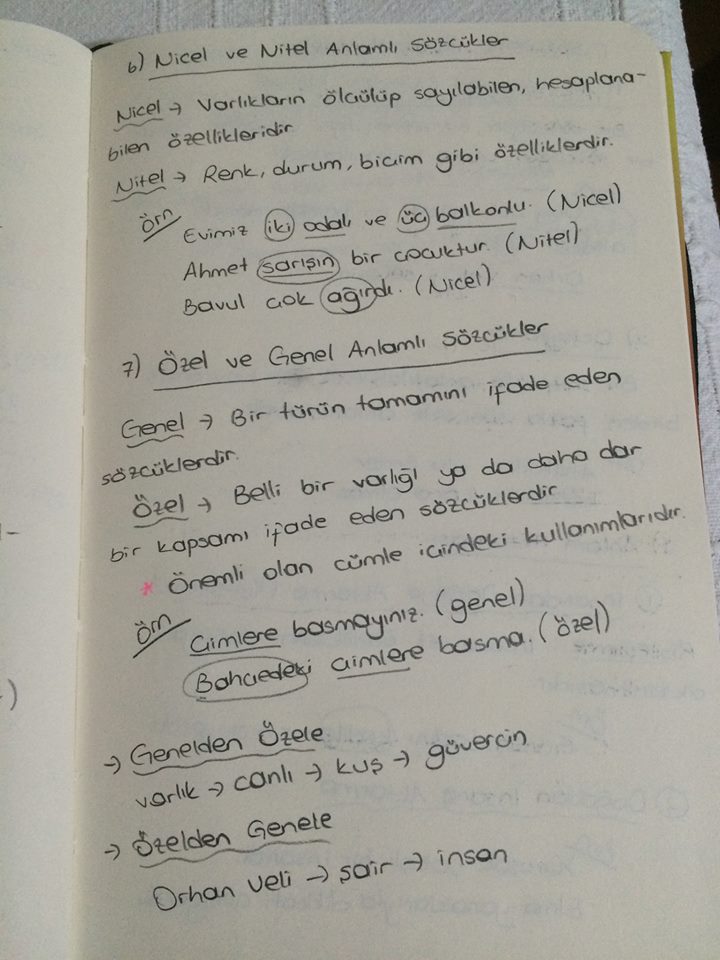 6) Nicel ve Nitel Anlamlı Sözcükler
Nicel → Varlıkların ölçülüp sayılabilen, hesaplana-
bilen özellikleridir
Nitel → Renk, durum, biçim gibi özelliklerdir.
Örn
Evimiz iki odalı ve üç balkonlu. (Nicel)
Ahmet sarışın bir çocuktur. (Nitel)
Bavul çok ağırdı. (Nicel)
7) Özel ve Genel Anlamlı Sözcükler
Genel → Bir türün tamamını ifade eden
sözcüklerdir.
Özel → Belli bir varlığı ya da daha dar
bir kapsamı ifade eden sözcüklerdir
* Önemli olan cümle içindeki kullanımlarıdır.
Örn
Çimlere basmayınız. (genel)
Bahçedeki çimlere basma. (özel)
→ Genelden Özele
varlık → canlı → kuş → güvercin
→ Özelden Genele
Orhan Veli → şair → insan